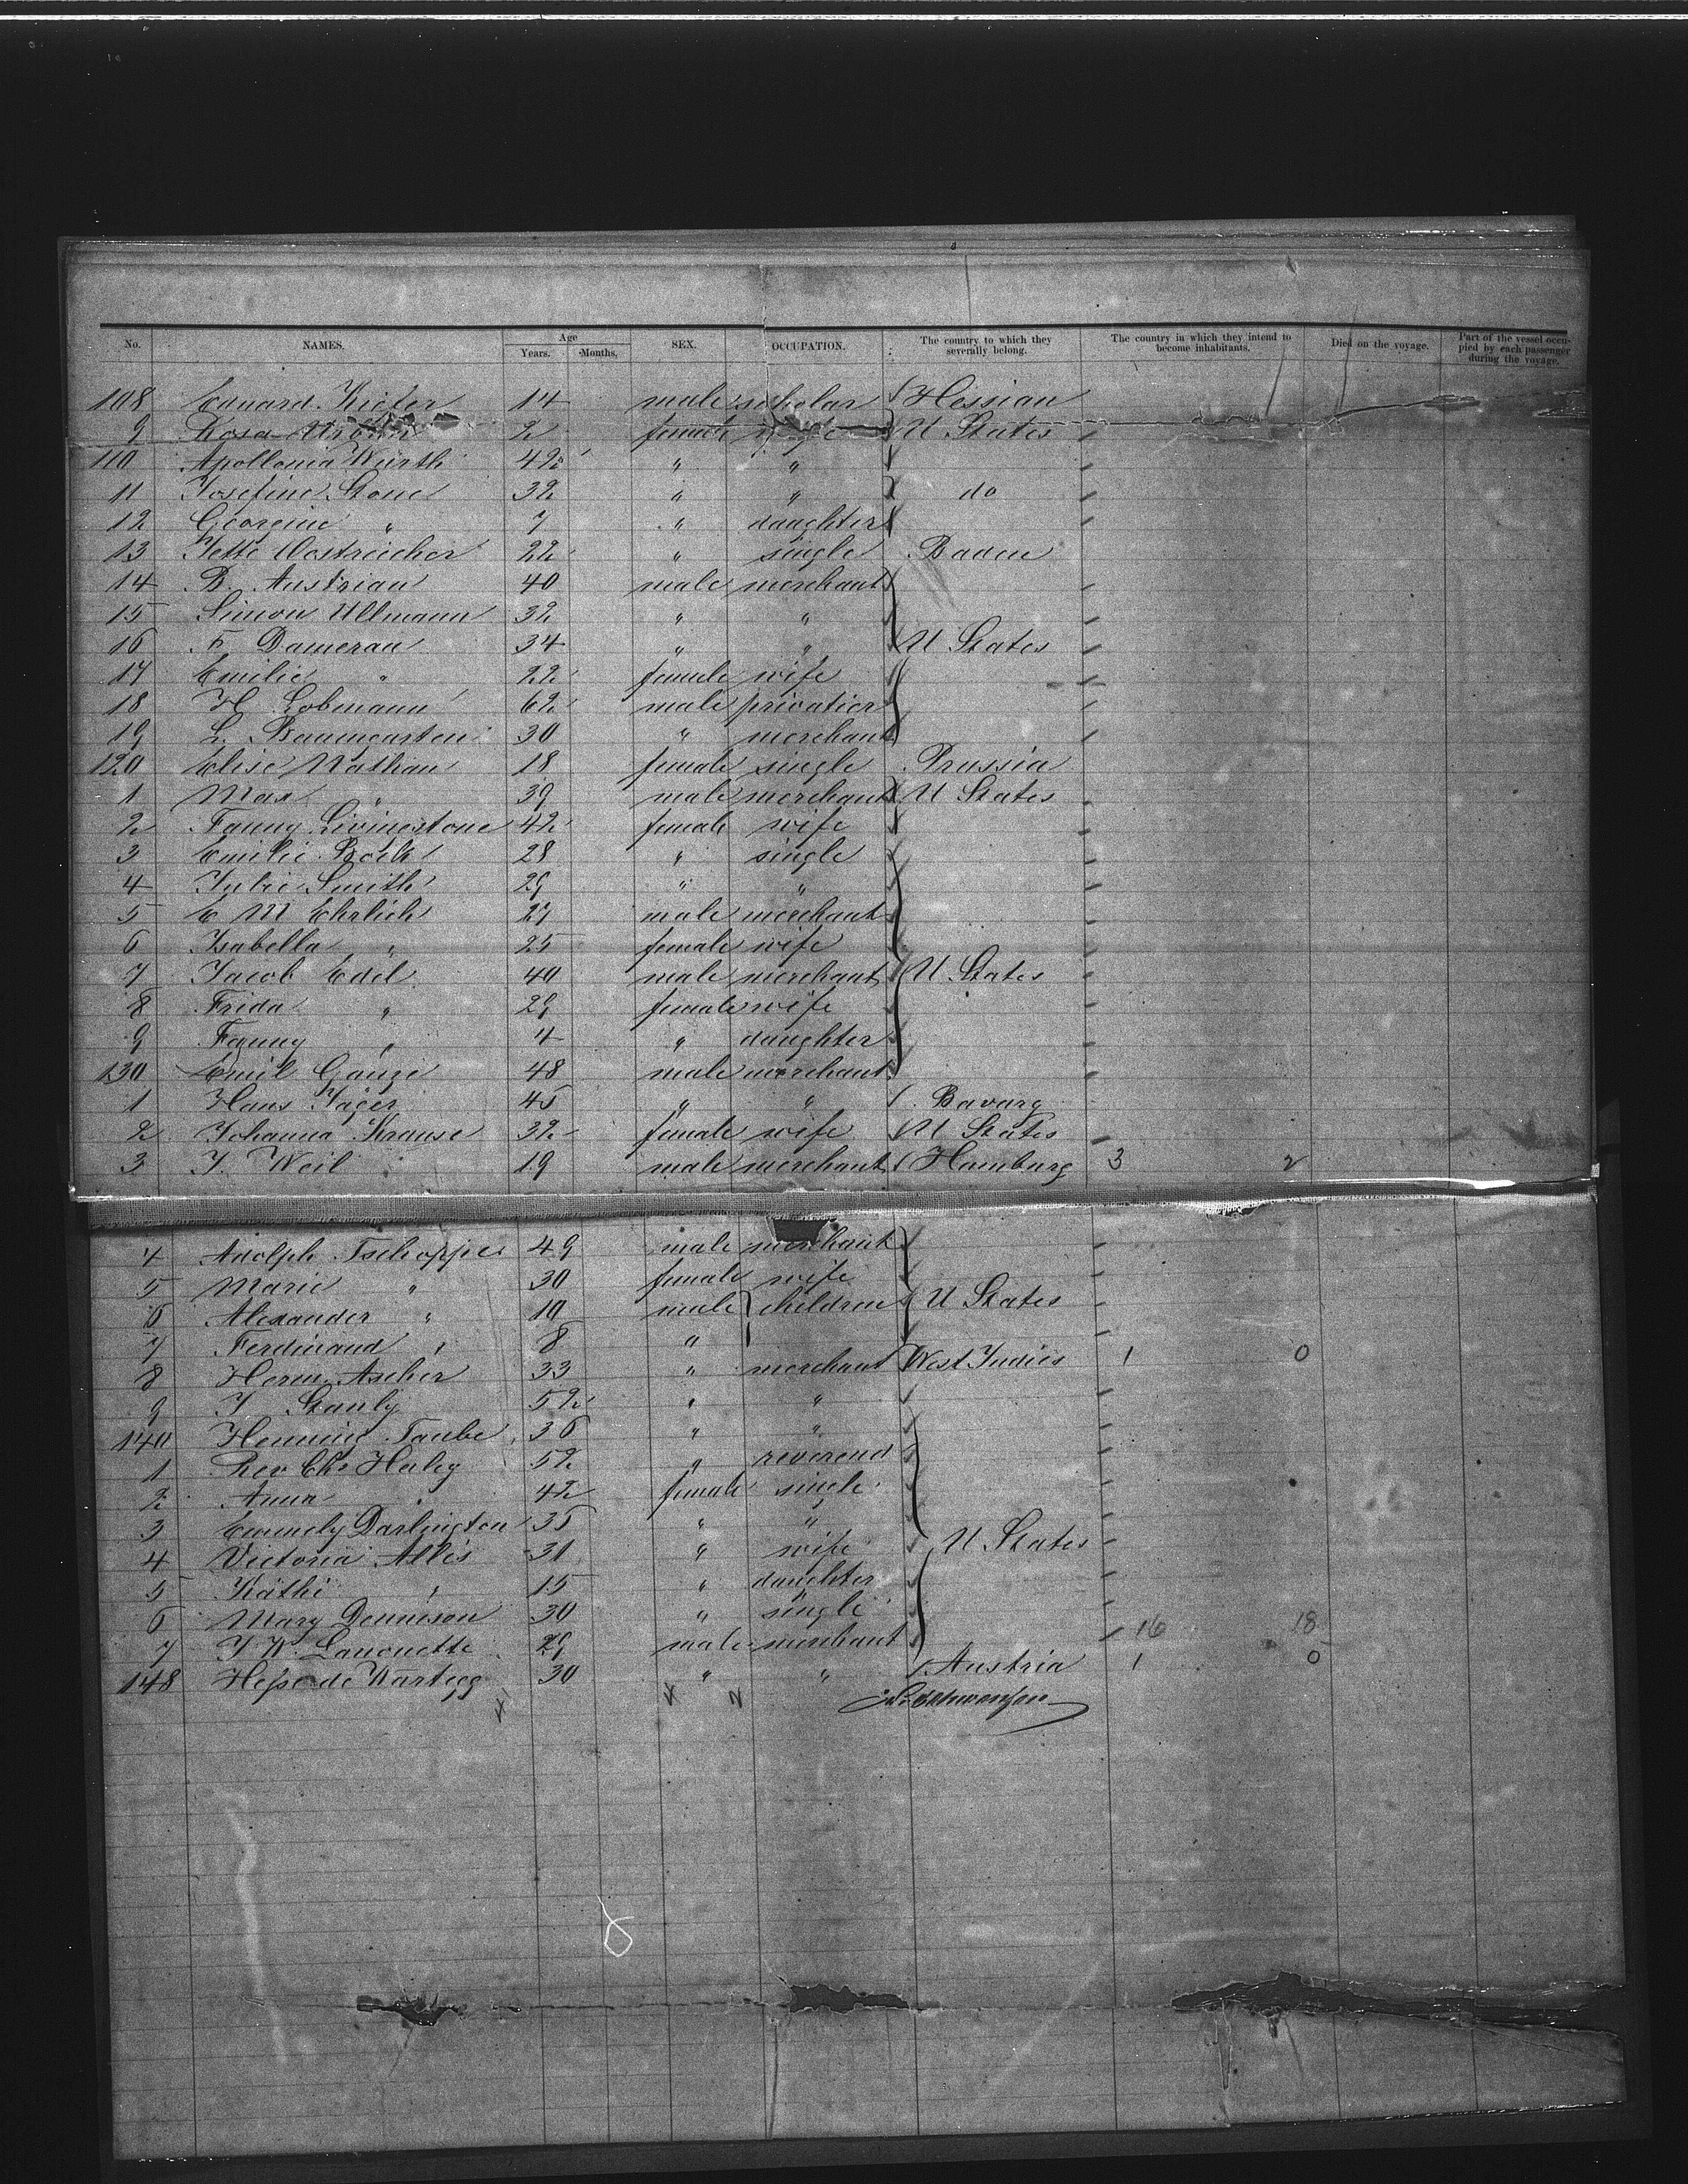 No. NAMES. Age Years. Months. SEX. OCCUPATION. The country to which they severally belong. The country in which they intend to become inhabitants. Died on the voyage. Part of the vessel occupied by each passenger during the voyage.
108 Eduard Kiefer 14 male scholar Hessian
9 Rosa 2 female U States
110 Apollonia Würth 42 " "
11 Josefine Stone 32 " " do
12 Georgine " 7 " daughter
13 Jette Oestreicher 22 " single Baden
14 B. Austrian 40 male merchant
15 Simon Ullmann 32 " "
16 F. Damerau 34 " " U States
17 Emilie " 22 female wife
18 H. Lobmann 62 male privatier
19 L. Baumgarten 30 " merchant
120 Elise Nathan 18 female single Prussia
1 Max " 39 male merchant U States
2 Fanny Livingstone 42 female wife
3 Emilie Bock 28 " single
4 Julie Smith 29 " "
5 E M Ehrlich 27 male merchant
6 Isabella " 25 female wife
7 Jacob Edel 40 male merchant U States
8 Frida " 29 female wife
9 Fanny " 4 " daughter
130 Emil Ganze 48 male merchant
1 Hans Jäger 45 " " Bavary
2 Johanna Krause 32 female wife U States
3 J. Weil 19 male merchant Hamburg 3 2
4 Adolph Tschoppe 49 male merchant
5 Marie " 30 female wife
6 Alexander " 10 male children U States
7 Ferdinand " 8 "
8 Herm. Ascher 33 " merchant West Indies 1 0
9 J Stanly 52 " "
140 Henning Taube 36 " "
1 Rev Chs Haley 52 " reverend
2 Anna 42 female single
3 Emmely Darlington 35 " "
4 Victoria Alles 31 " wife U States
5 Käthi " 15 " daughter
6 Mary Dennison 30 " single
7 J W. Lanouette 29 male merchant 16 18
148 Hesse de Wartegg 30 " " Austria 1 0
8